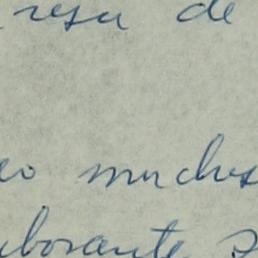 resa de
eo muchos
aborante